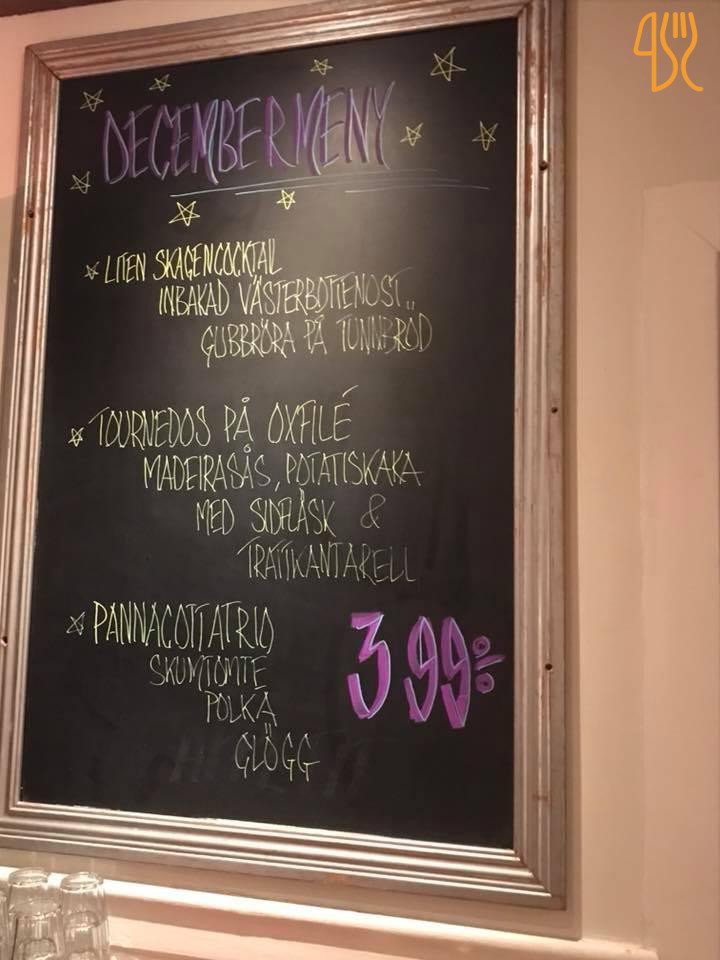 DECEMBERMENY
LITEN SKAGENCOCKTAIL
INBAKAD VÄSTERBOTTENOST
GUBBRÖRA PÅ TUNNBRÖD
TOURNEDOS PÅ OXFILÉ
MADEIRASÅS, POTATISKAKA
MED SIDFLÄSK &
TRATTKANTARELL
PANNACOTTATRIO
SKUMTOMTE
POLKA
GLÖGG
399:-